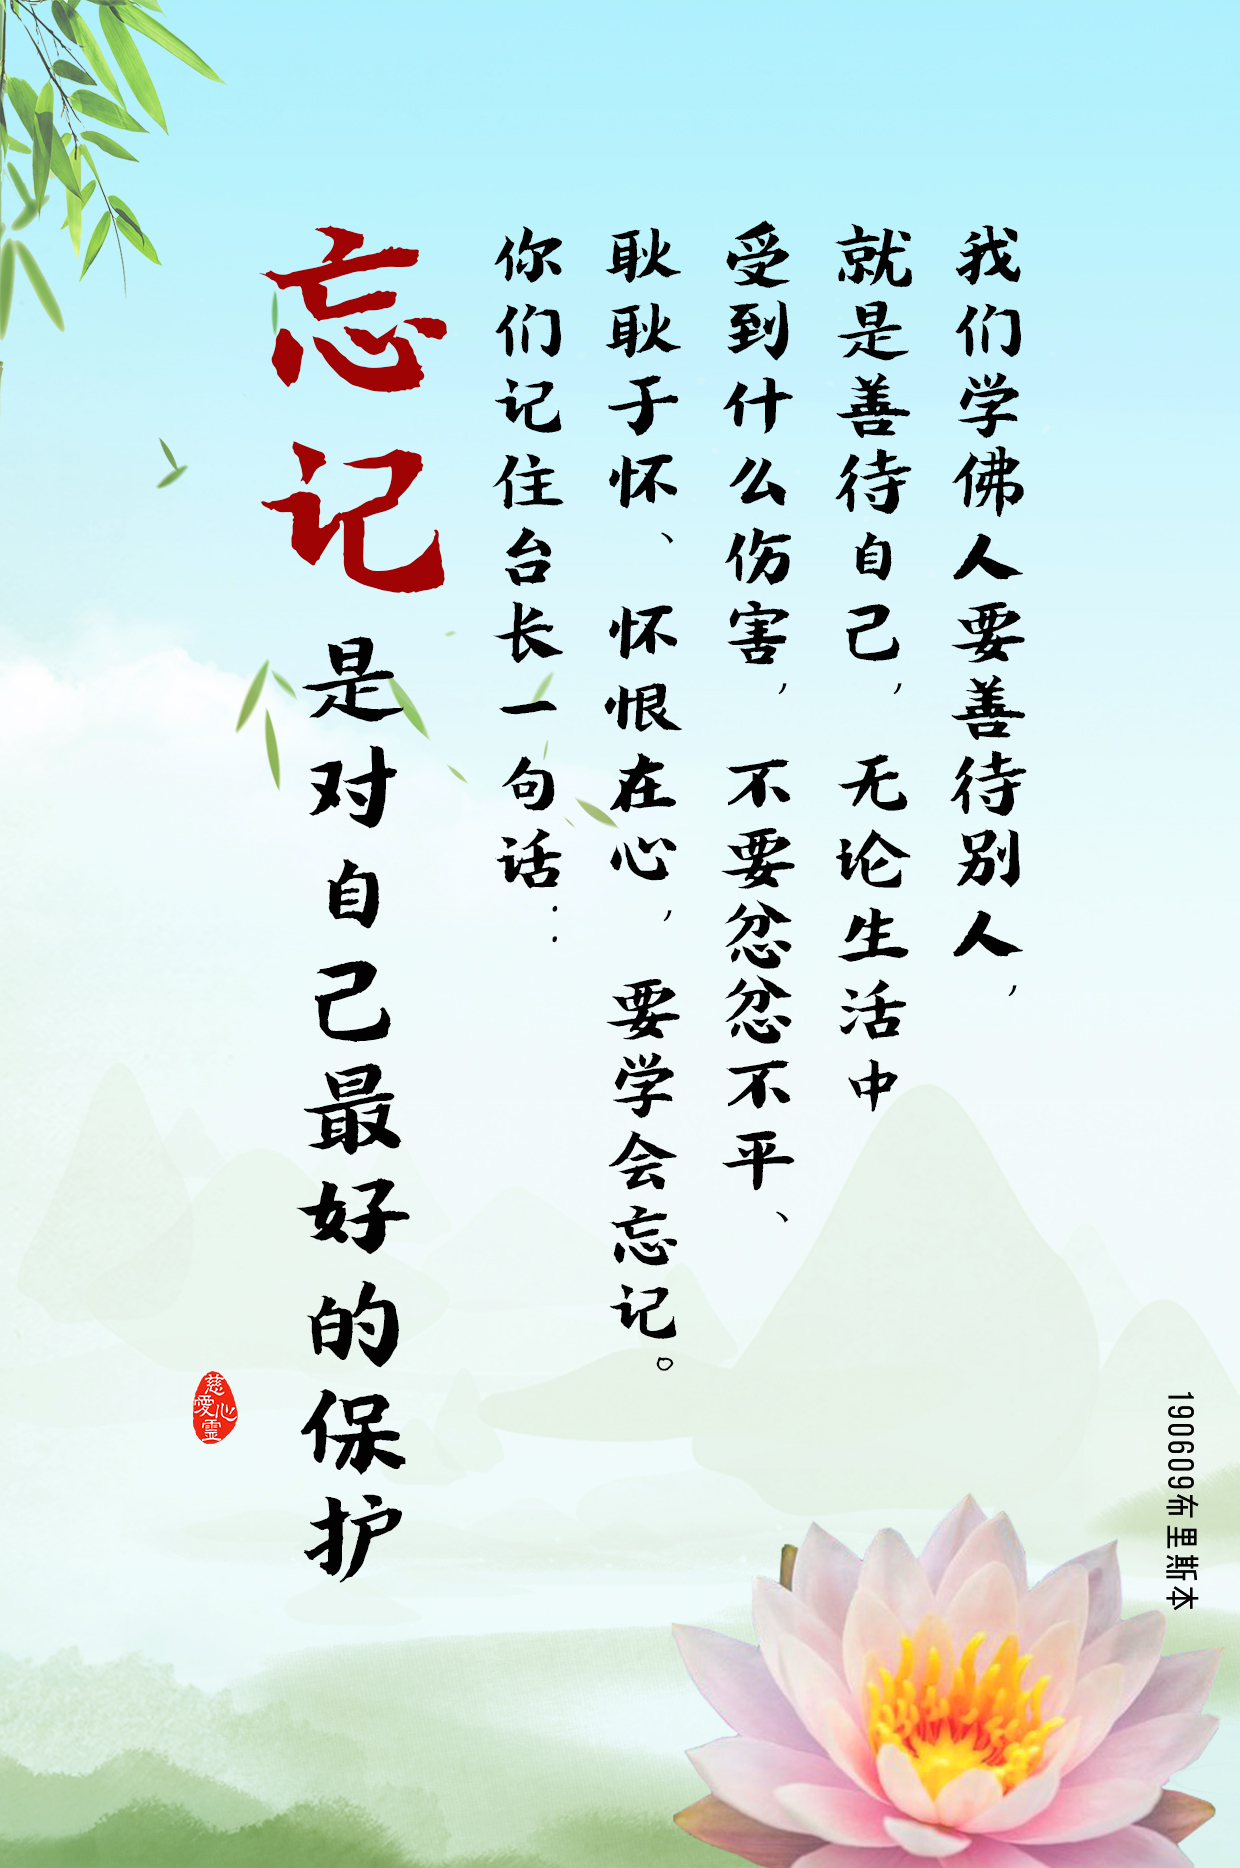 我们学佛人要善待别人，
就是善待自己，无论生活中
受到什么伤害，不要忿忿不平、
耿耿于怀、怀恨在心，要学会忘记。
你们记住台长一句话：
忘记是对自己最好的保护
慈愛心靈
190609布里斯本